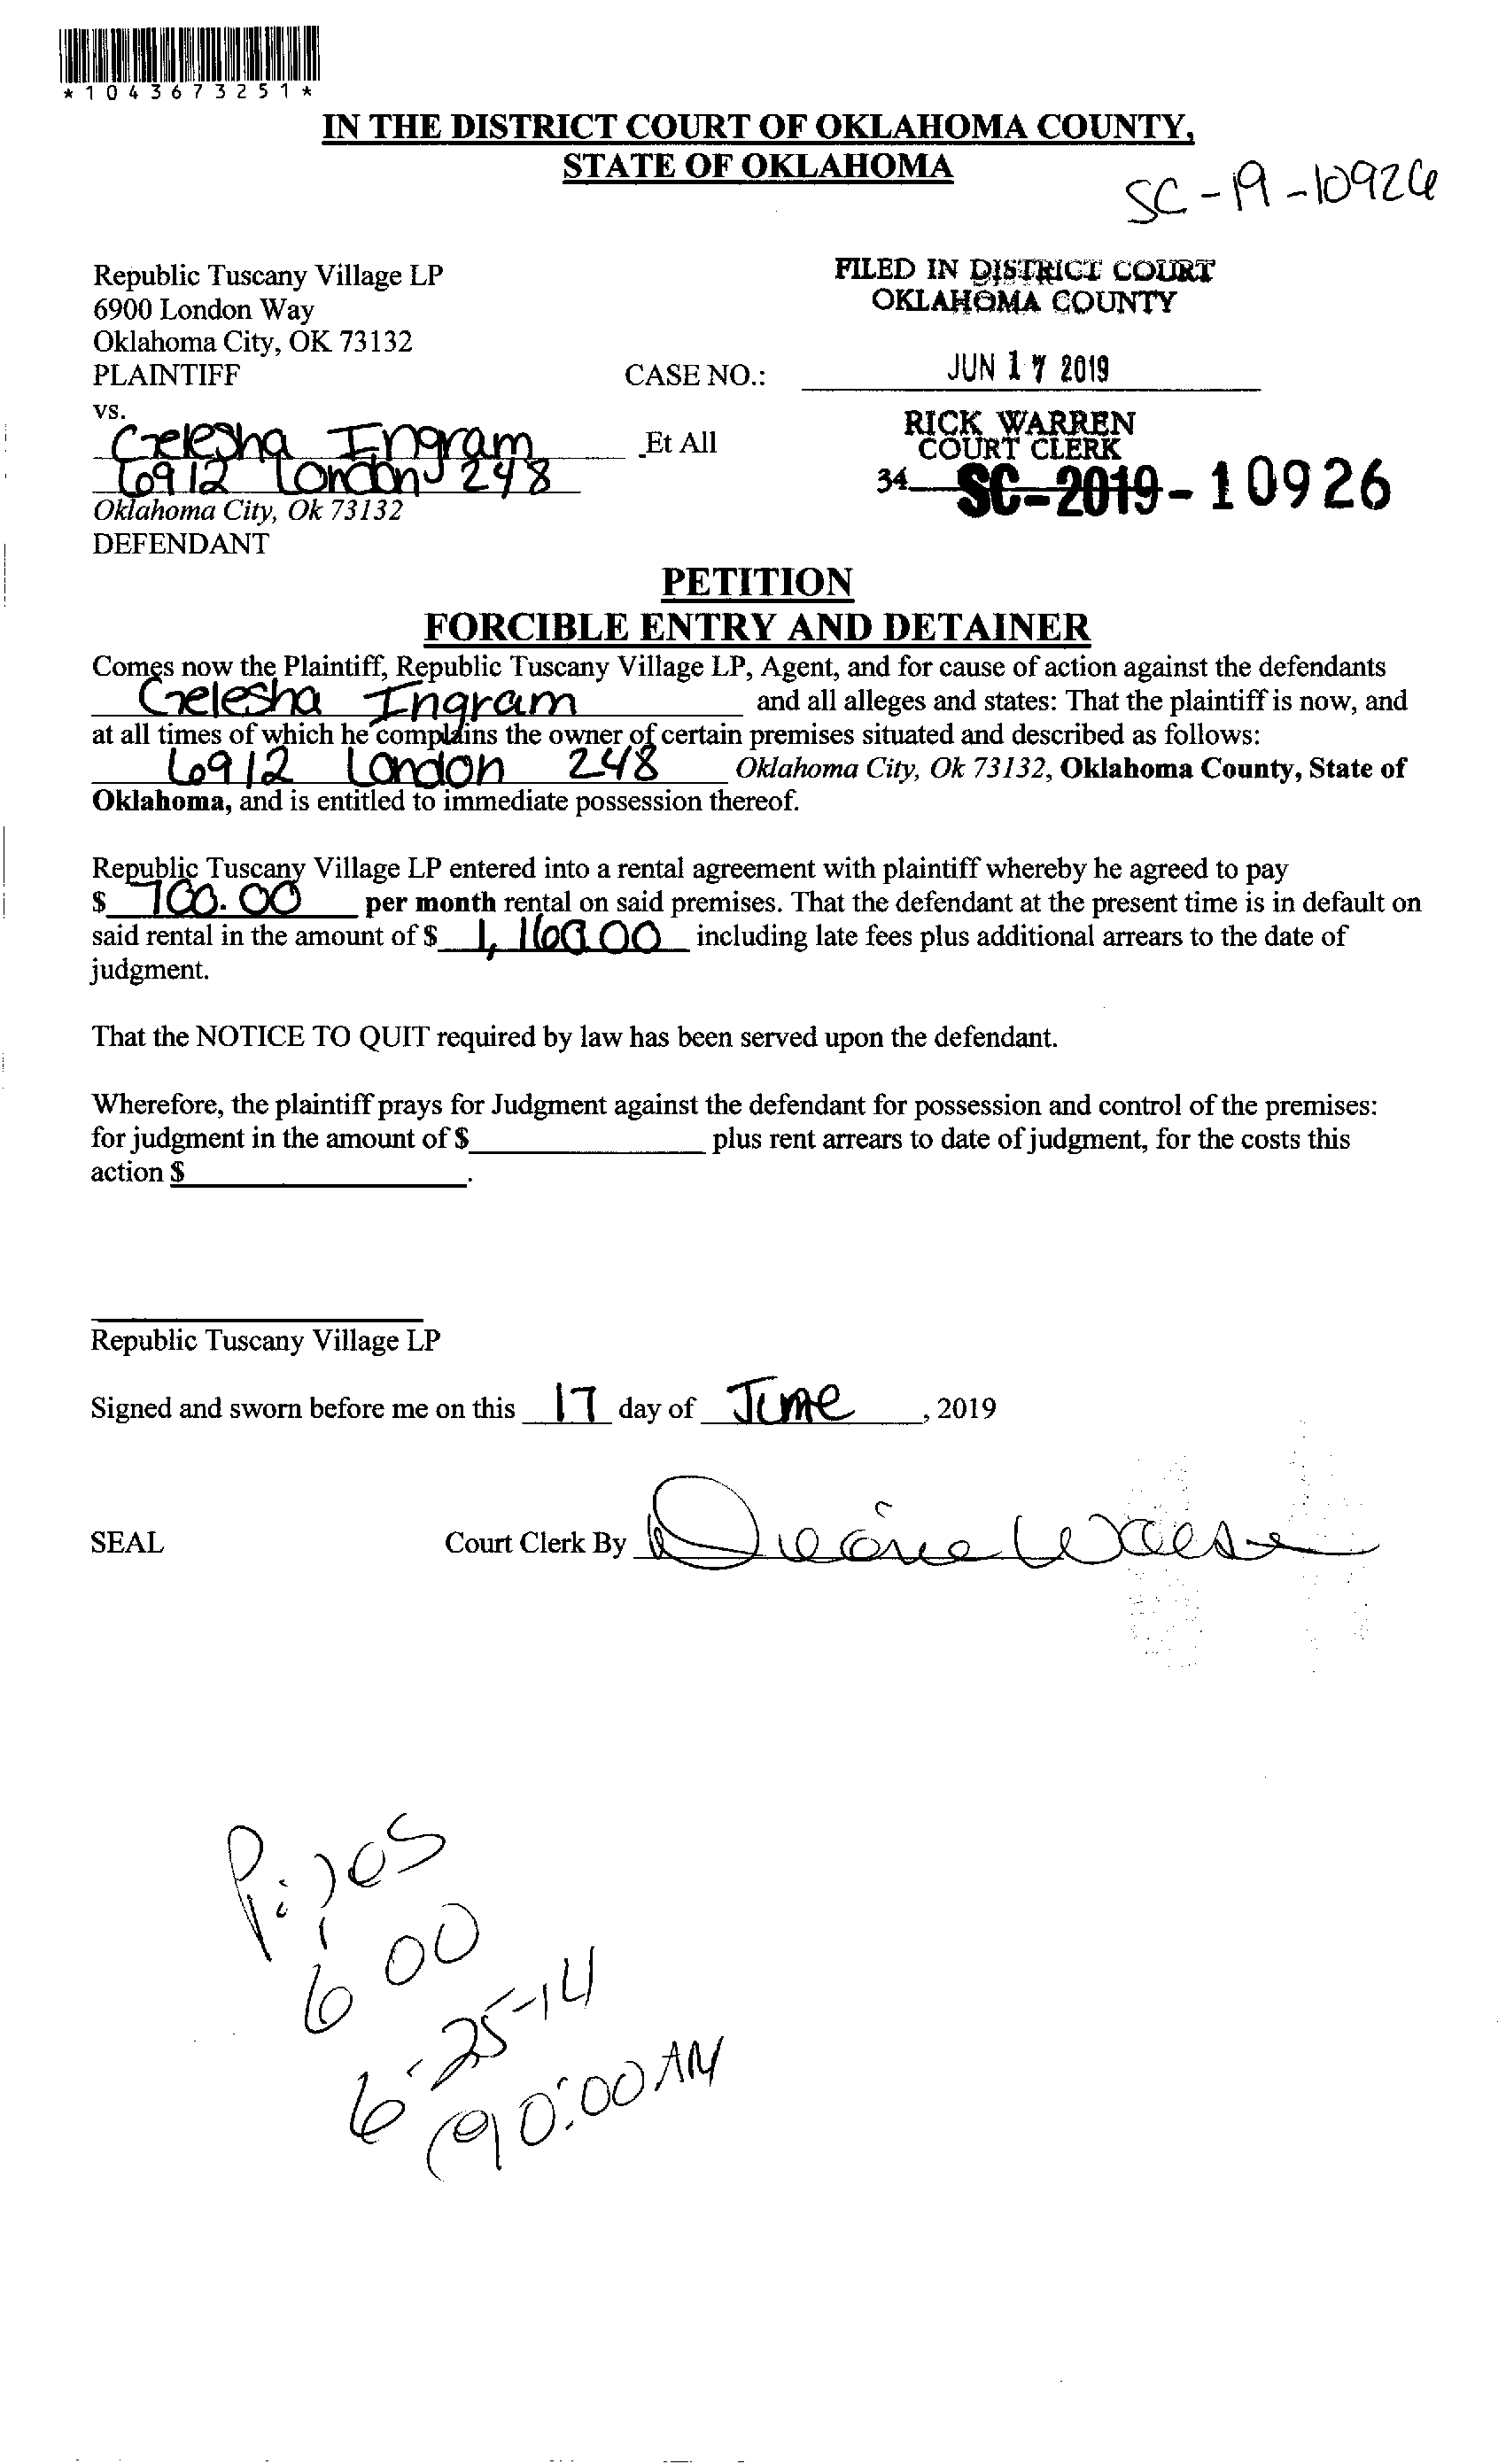 *1043673251*
IN THE DISTRICT COURT OF OKLAHOMA COUNTY,
STATE OF OKLAHOMA
SC-19-10926
Republic Tuscany Village LP
6900 London Way
Oklahoma City, OK 73132
PLAINTIFF
FILED IN DISTRICT COURT
OKLAHOMA COUNTY
CASE NO.: JUN 17 2019
vs.
Gelesha Ingram Et All
6912 London 248
Oklahoma City, Ok 73132
DEFENDANT
RICK WARREN
COURT CLERK
34 SC-2019-10926
PETITION
FORCIBLE ENTRY AND DETAINER
Comes now the Plaintiff, Republic Tuscany Village LP, Agent, and for cause of action against the defendants
Gelesha Ingram and all alleges and states: That the plaintiff is now, and
at all times of which he complains the owner of certain premises situated and described as follows:
6912 London 248 Oklahoma City, Ok 73132, Oklahoma County, State of
Oklahoma, and is entitled to immediate possession thereof.
Republic Tuscany Village LP entered into a rental agreement with plaintiff whereby he agreed to pay
$ 700.00 per month rental on said premises. That the defendant at the present time is in default on
said rental in the amount of $ 1,160.00 including late fees plus additional arrears to the date of
judgment.
That the NOTICE TO QUIT required by law has been served upon the defendant.
Wherefore, the plaintiff prays for Judgment against the defendant for possession and control of the premises:
for judgment in the amount of $ plus rent arrears to date of judgment, for the costs this
action $ .
Republic Tuscany Village LP
Signed and sworn before me on this 17 day of June, 2019
SEAL Court Clerk By
600